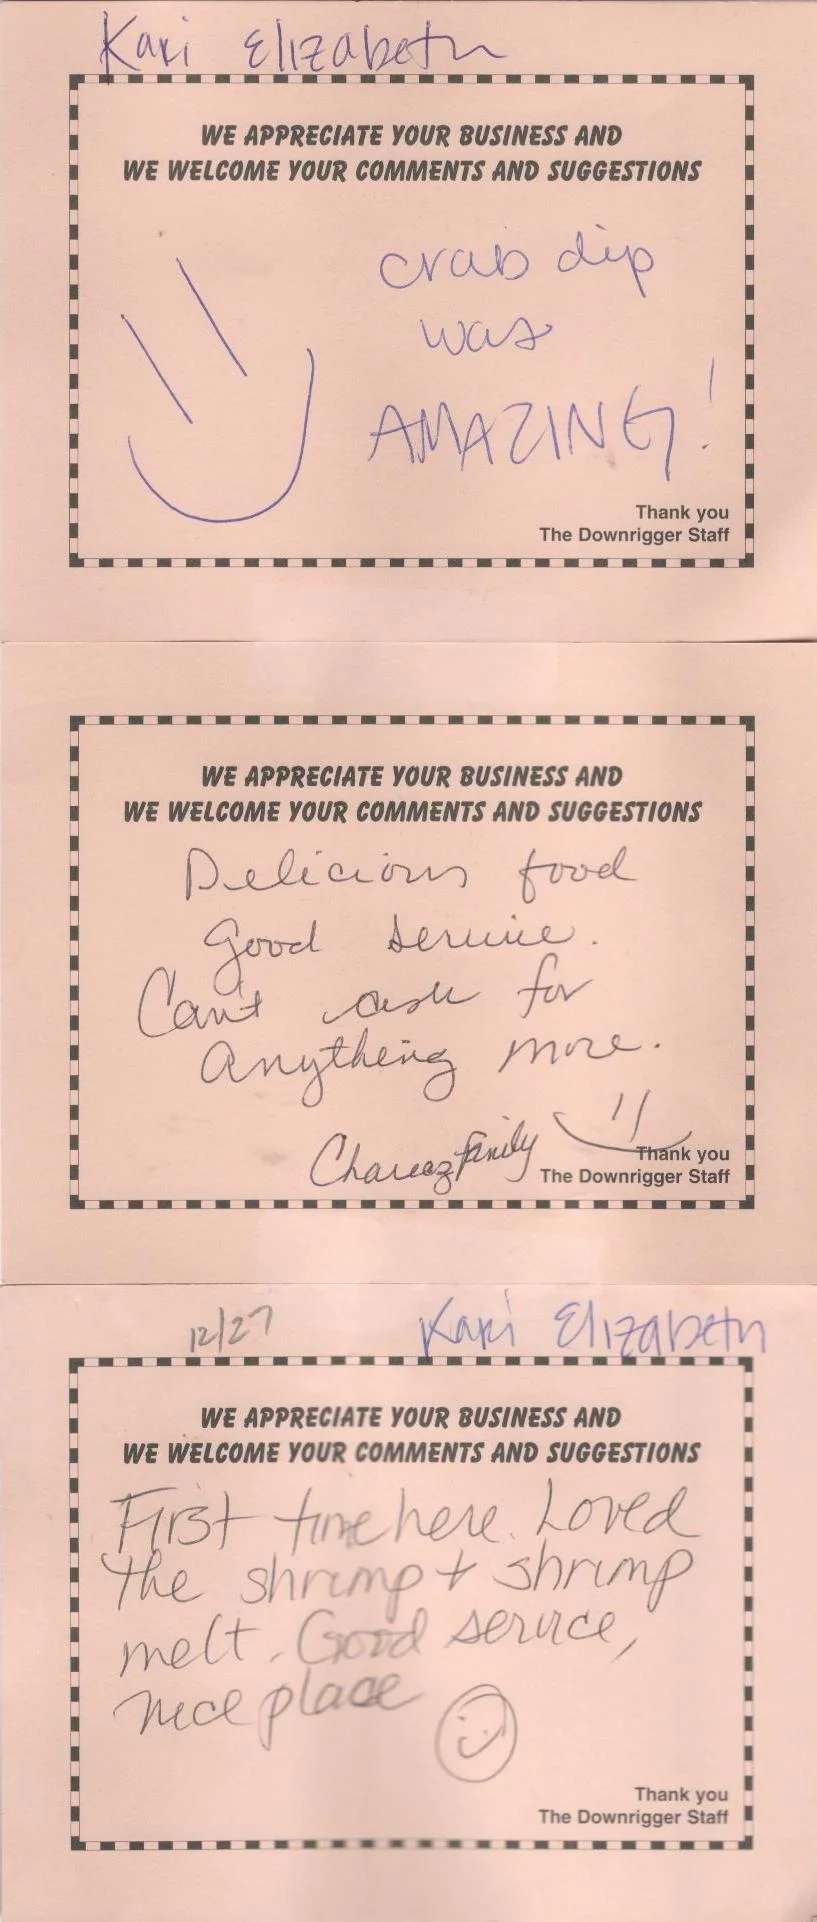 Kari Elizabeth
WE APPRECIATE YOUR BUSINESS AND
WE WELCOME YOUR COMMENTS AND SUGGESTIONS
crab dip
was
AMAZING!
Thank you
The Downrigger Staff
WE APPRECIATE YOUR BUSINESS AND
WE WELCOME YOUR COMMENTS AND SUGGESTIONS
Delicious food
Good service.
Can't ask for
anything more.
Family
Thank you
The Downrigger Staff
12/27 Kari Elizabeth
WE APPRECIATE YOUR BUSINESS AND
WE WELCOME YOUR COMMENTS AND SUGGESTIONS
First time here. Loved
the shrimp + shrimp
melt. Good service,
nice place
Thank you
The Downrigger Staff